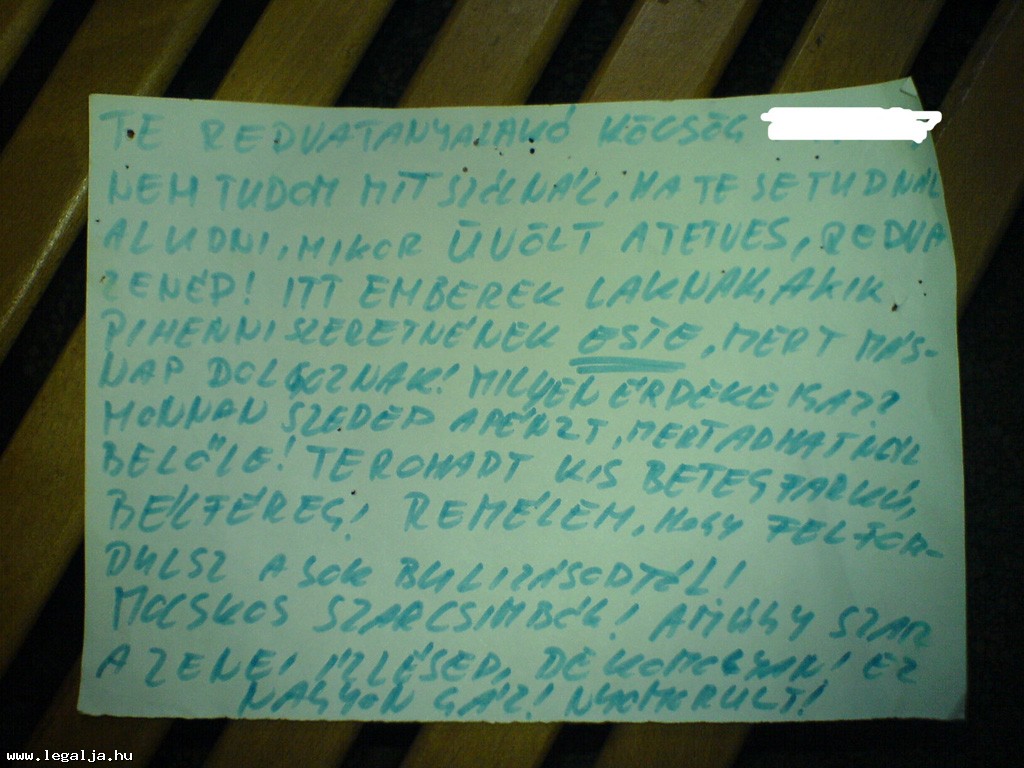 TE REDVATANYALAKÓ KÖCSÖG
NEM TUDOM MIT SZÓLNÁL, HA TE SE TUDNÁL
ALUDNI, MIKOR ÜVÖLT A TETVES, REDVA
ZENÉD! ITT EMBEREK LAKNAK, AKIK
PIHENNI SZERETNÉNEK ESTE, MERT MÁS-
NAP DOLGOZNAK! MILYEN ÉRDEKE IGAZ??
HONNAN SZEDED A PÉNZT, MERT ADHATNÁL
BELŐLE! TE ROHADT KIS BETEGFARKÚ,
BÉLFÉREG! REMÉLEM, HOGY FELFOR-
DULSZ A SOK BULIZÁSODTÓL!
MOCSKOS SZARCSIMBÓK! AMÚGY SZAR
A ZENEI ÍZLÉSED, DE KOMOLYAN! EZ
NAGYON GÁZ! NYOMORULT!
www.legalja.hu